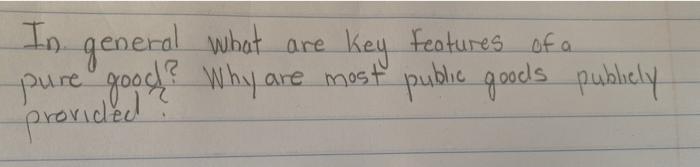 In general what are key features of a
pure good? Why are most public goods publicly
provided?